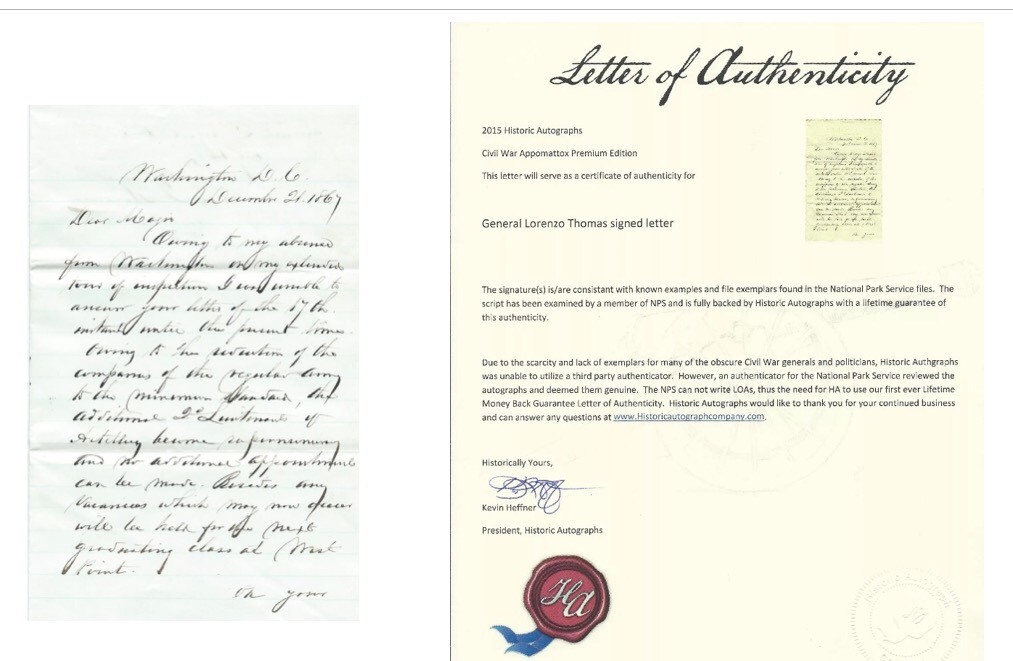 Washington D. C.
December 21. 1867
Dear Major
Owing to my absence
from Washington on my extended
tour of inspection I was unable to
answer your letter of the 17th
instant until the present time.
Owing to the reduction of the
companies of the regular army
to the minimum standard, the
additional 2d Lieutenants of
Artillery become supernumerary
and no additional appointments
can be made. Besides any
vacancies which may now occur
will be held for the next
graduating class at West
Point.
your
Letter of Authenticity
2015 Historic Autographs
Civil War Appomattox Premium Edition
This letter will serve as a certificate of authenticity for
General Lorenzo Thomas signed letter
The signature(s) is/are consistant with known examples and file exemplars found in the National Park Service files. The
script has been examined by a member of NPS and is fully backed by Historic Autographs with a lifetime guarantee of
this authenticity.
Due to the scarcity and lack of exemplars for many of the obscure Civil War generals and politicians, Historic Authgraphs
was unable to utilize a third party authenticator. However, an authenticator for the National Park Service reviewed the
autographs and deemed them genuine. The NPS can not write LOAs, thus the need for HA to use our first ever Lifetime
Money Back Guarantee Letter of Authenticity. Historic Autographs would like to thank you for your continued business
and can answer any questions at www.Historicautographcompany.com.
Historically Yours,
Kevin Heffner
President, Historic Autographs
HA